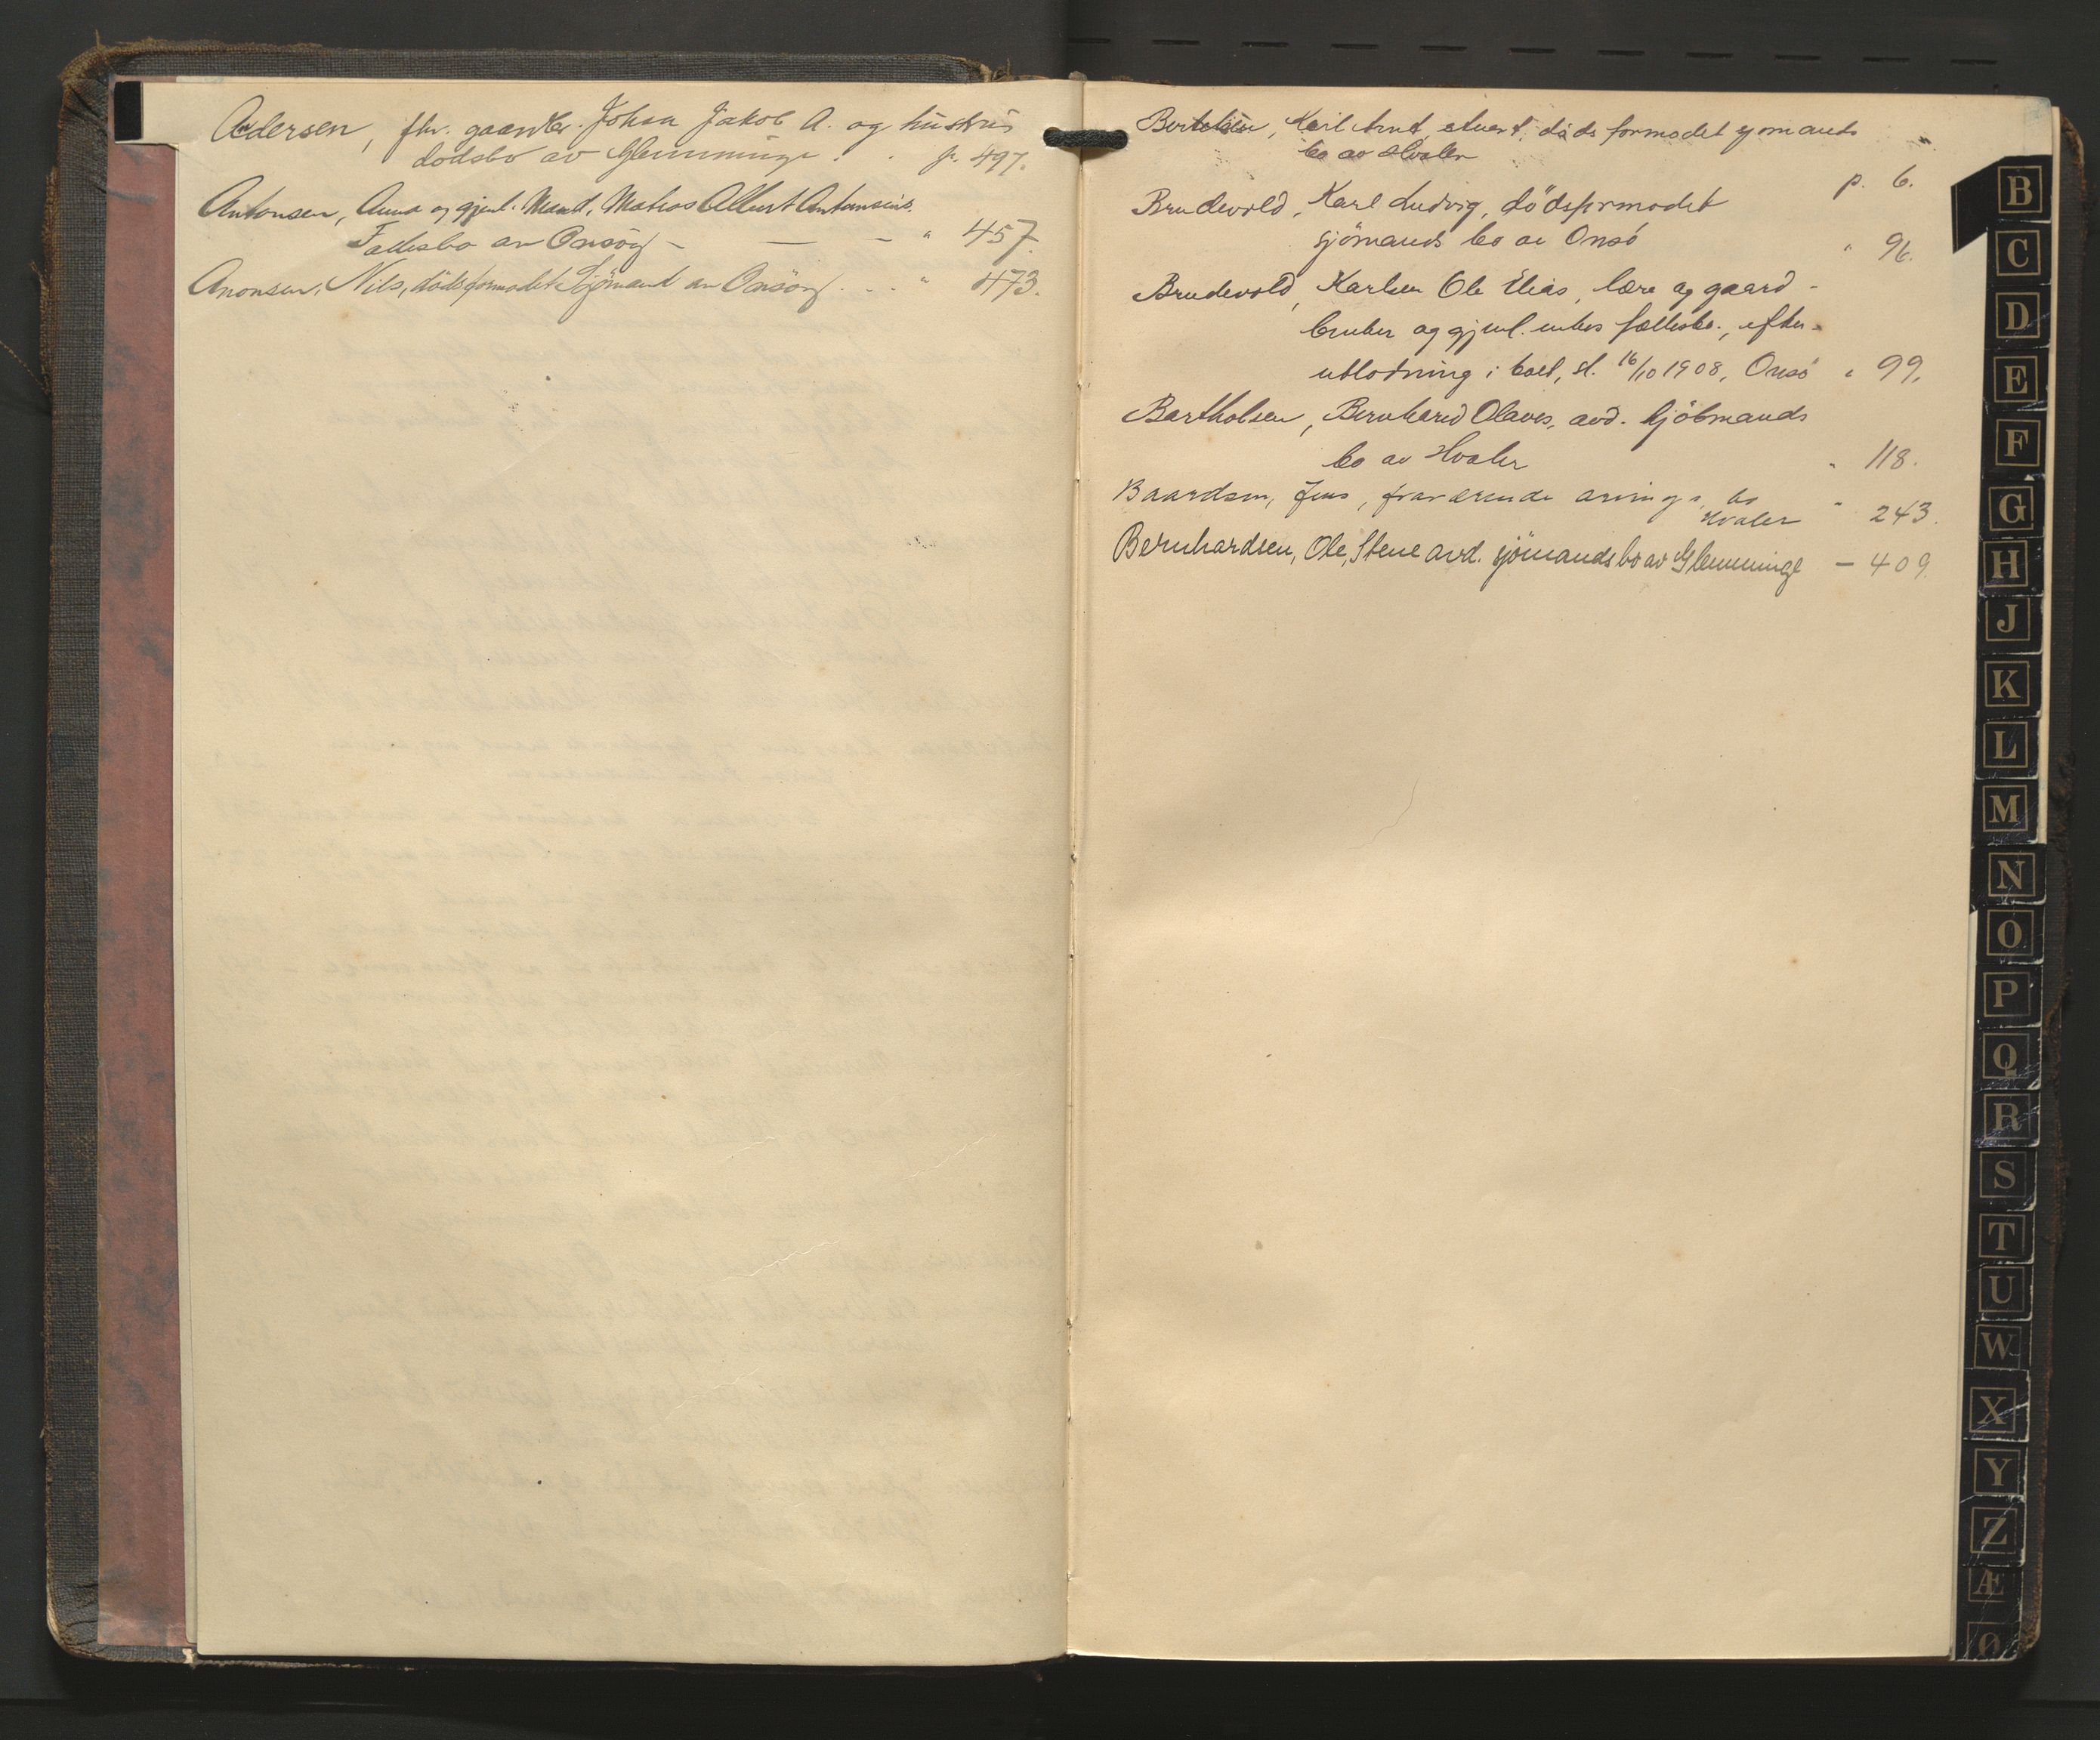 Andersen, fhv. gaardbr. Johan Jakob A. og hustrus
dødsbo av Glemminge . . p. 497.
Antonsen, Anna og gjenl. Mand, Matros Albert Antonsens
Fællesbo av Onsöy - — - " 457.
Aronsen, Nils, dödsformodet Sjömand av Onsöy . . . " 473.
Bertelsen, Karl Arnt, dödsformodet sjömands
bo av Hvaler
p. 6.
Brudevold, Karl Ludvig, dödsformodet
sjömands bo av Onsö " 96.
Brudevold, Karlsen Ole Elias, lærer og gaard-
bruker og gjenl. enkes fællesbo, efter-
utlodning i boet, sl. 16/10 1908, Onsö " 99.
Bartholsen, Bernhard Olaves, avd. kjöbmands
bo av Hvaler " 118.
Baardsen, Jens, fraværende arvings bo
Hvaler " 243.
Bernhardsen, Ole, Stene avd. sjömands bo av Glemminge — 409.
B
C
D
E
F
G
H
J
K
L
M
N
O
P
Q
R
S
T
U
W
X
Y
Z
Æ
Ø